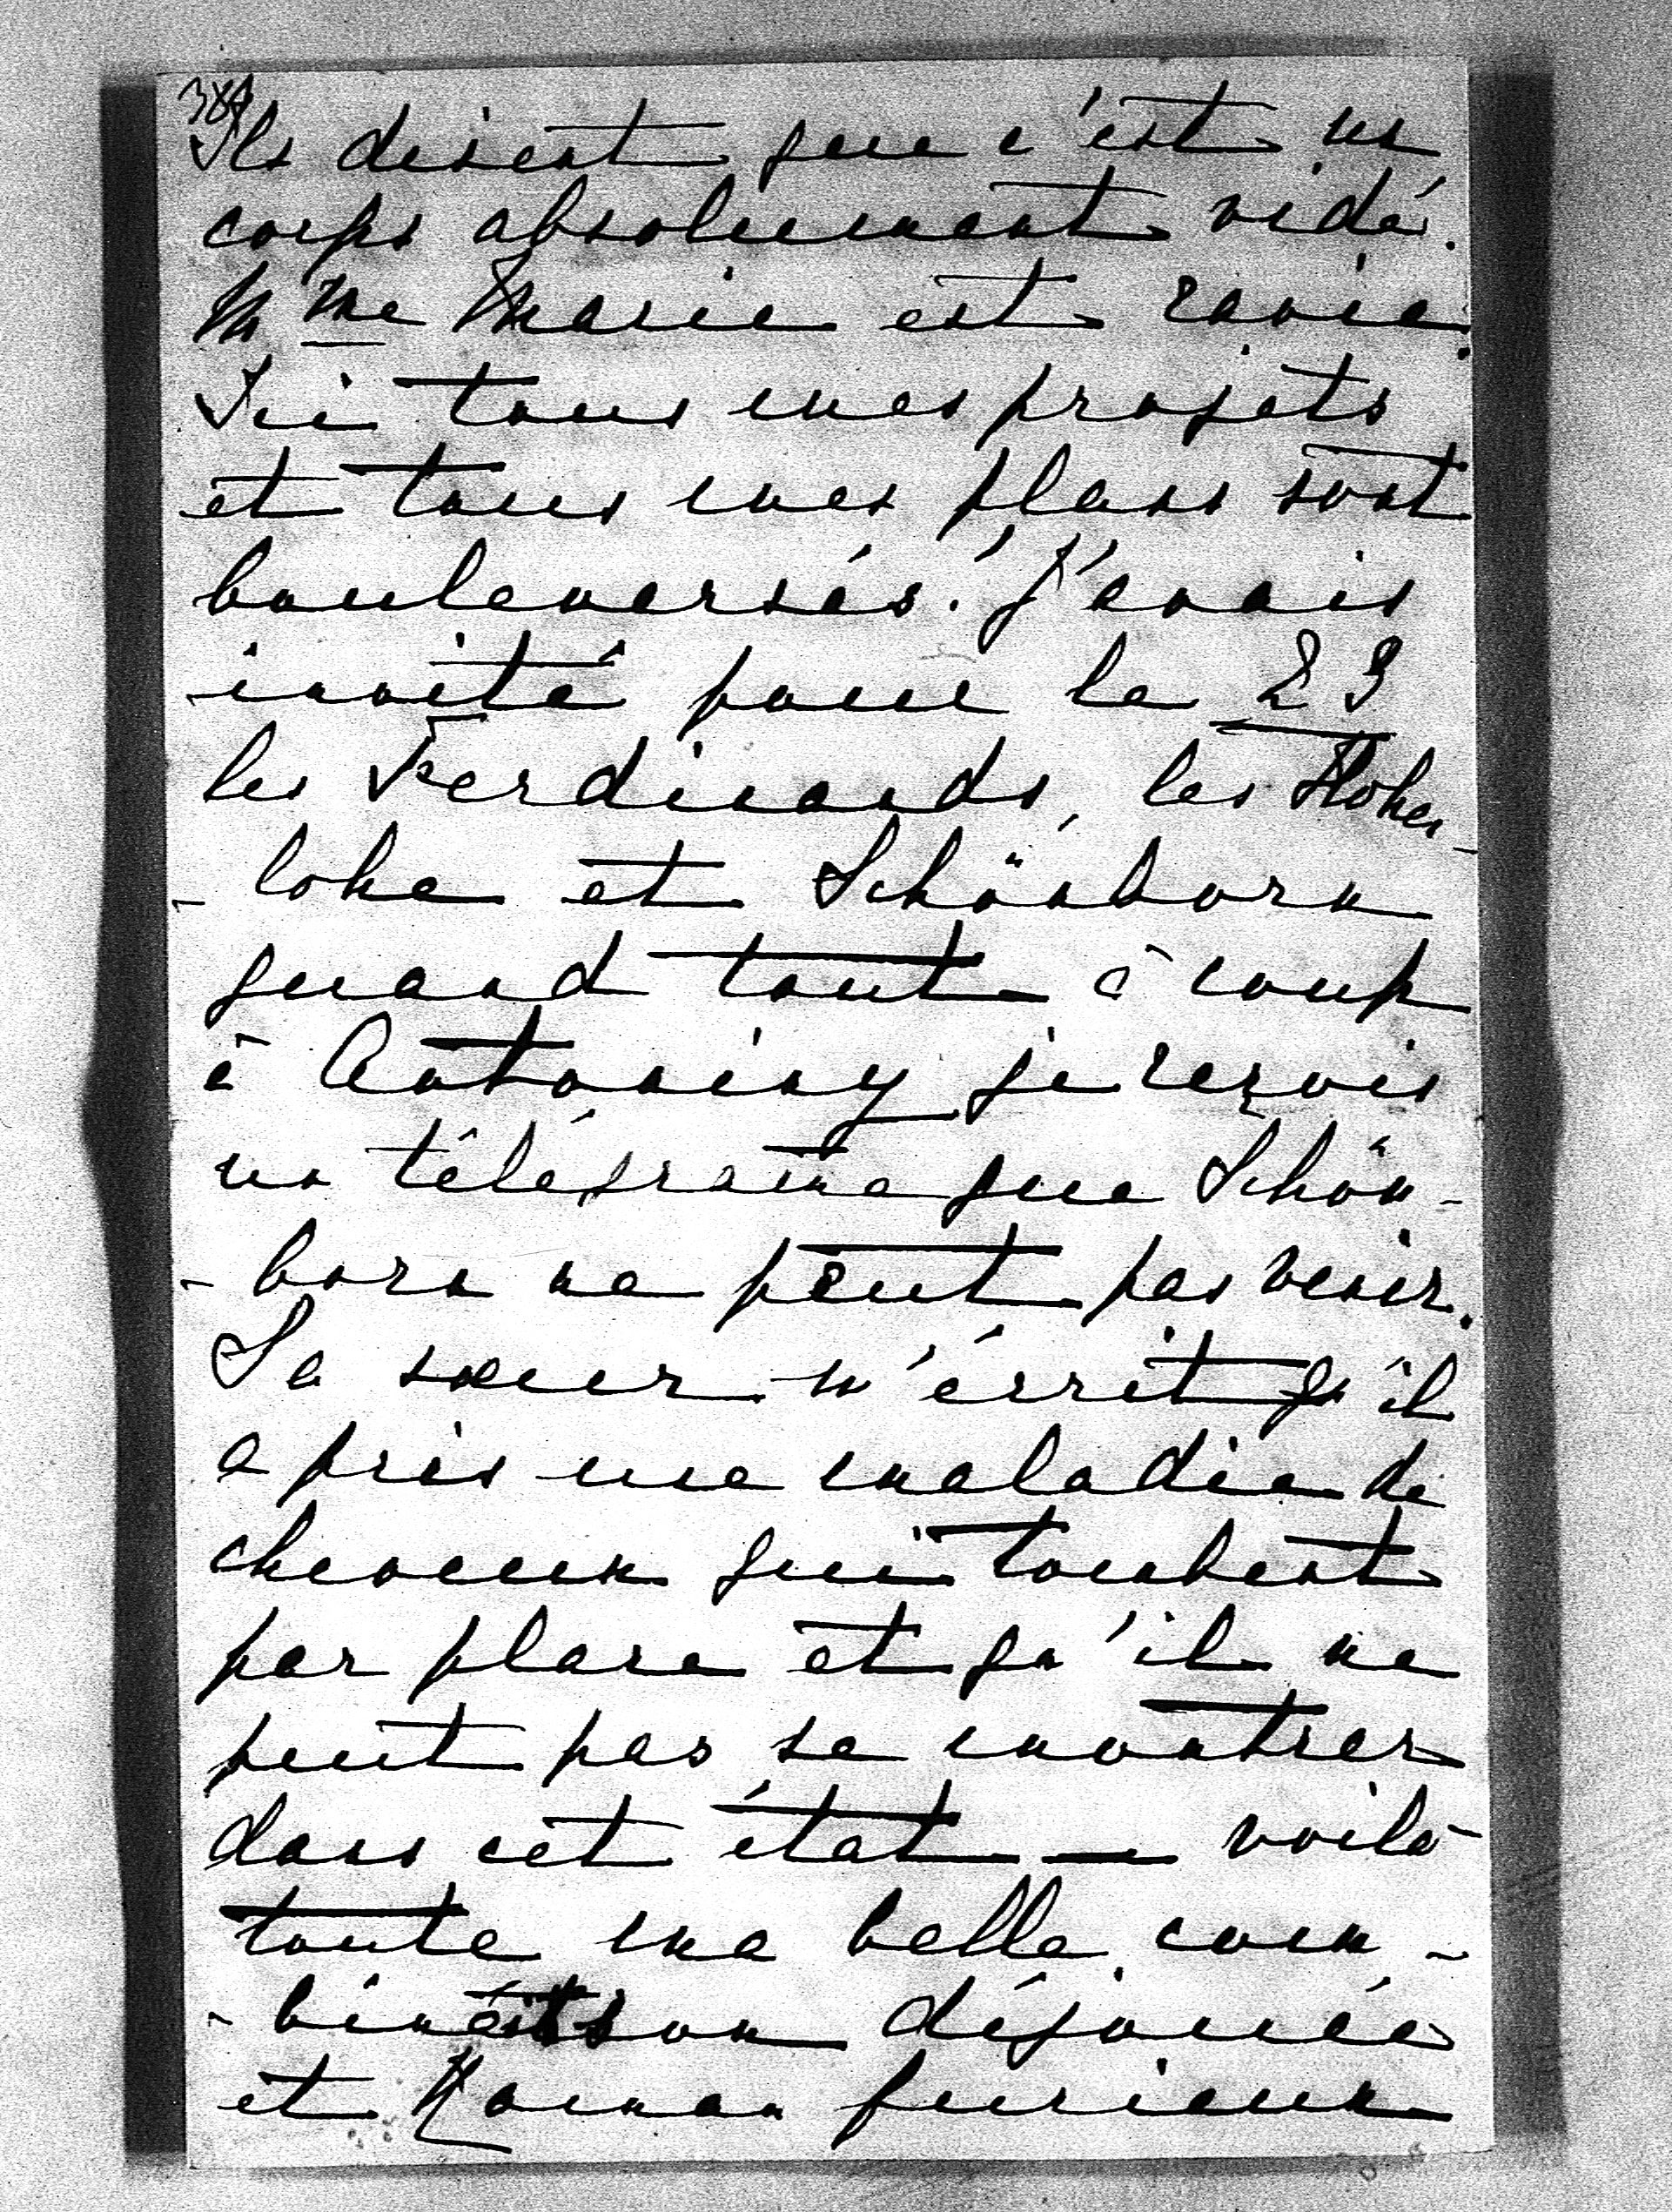 Ils disent que c'est un
corps absolument vidé.
Mme Marie est ravie.
Ici tous mes projets
et tous mes plans sont
bouleversés! J'avais
invité pour le 23
les Ferdinands, les Hohen-
- lohe et Schönborn
quand tout à coup
à Antoniny je reçois
un télégrame que Schön-
- born ne peut pas venir.
Sa sœur m'écrit qu'il
a pris une maladie de
cheveux qui tombent
par place et qu'il ne
peut pas se montrer
dans cet état — voilà
toute ma belle com-
- binaison déjouée
et Roman furieux